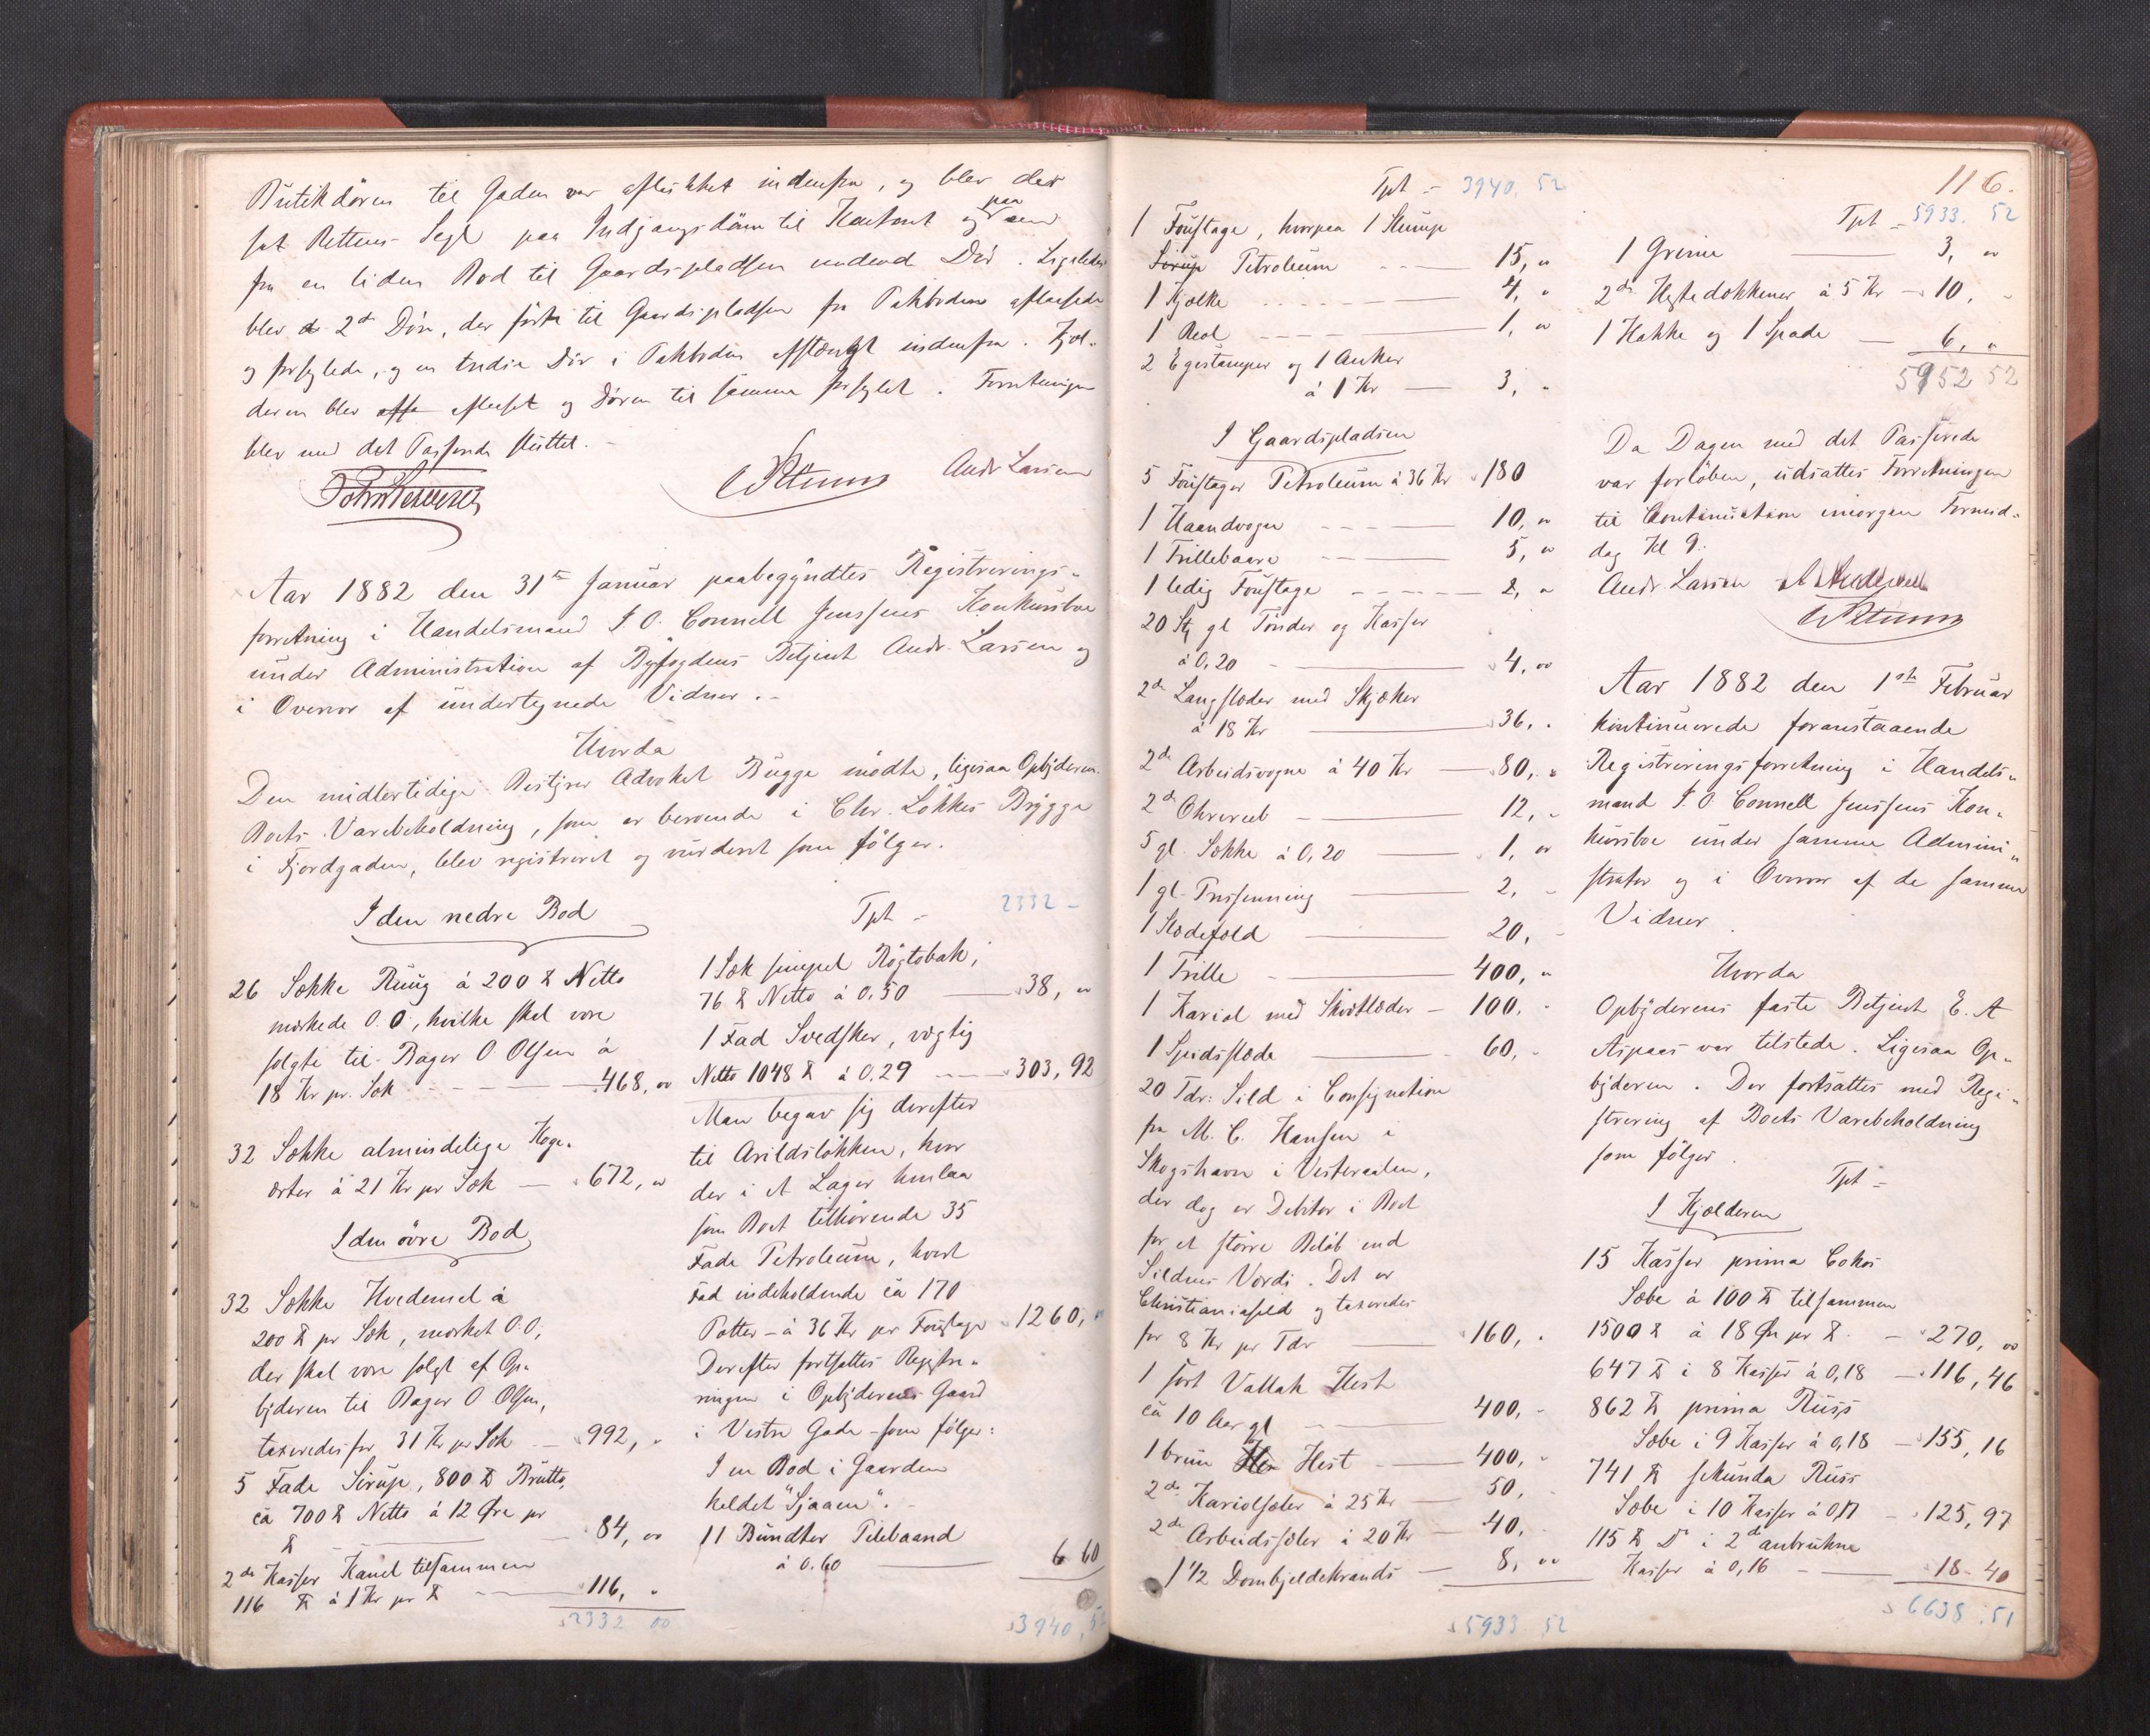 Butikdören til Gaden var aflukket indenfra, og blev der
sat Rettens Segl paa Indgangsdören til Kontoret og paa den
fra en liden Bod til Gaardspladsen vendende Dör. Ligeledes
blev de 2de Döre, der förte til Gaardspladsen fra Pakboden aflaasede
og forseglede, og en tredie Dör i Pakboden afstængt indenfra. Kjæl-
deren blev aflaaset og Dören til samme forseglet. Forretningen
blev med det Passerede sluttet.
Andr Larsen
Aar 1882 den 31te Januar paabegyndtes Registrerings-
forretning i Handelsmand J. O. Connell Jenssens Konkursboe
under Administration af Byfogdens Betjent Andr. Larsen og
i Overvær af undertegnede Vidner.-
Hvorda
Den midlertidige Bestyrer Advokat Bugge mödte, ligesaa Opbyderen.
Boets Varebeholdning, som er beroende i Chr. Lökkes Brygge
i Fjordgaden, blev registreret og vurderet som fölger.
I den nedre Bod
26 Sække Rug à 200 ℔ Netto
mærkede O. O, hvilke skal være
solgte til Bager O Olsen à
18 Kr pr. Sæk 468, 00
32 Sække almindelige Koge-
ærter à 21 Kr pr Sæk - 672, 00
I den övre Bod
32 Sække Hvedemel à
200 ℔ pr Sæk, mærket O.O,
der skal være solgt af Op-
byderen til Bager O Olsen,
taxeredes for 31 Kr pr Sæk - 992, "
5 Fade Sirup, 800 ℔ Brutto,
ca 700 ℔ Netto à 12 Öre pr
℔ 84, 00
2de Kasser Kanel tilsammen
116 ℔ à 1 Kr pr ℔ 116, "
2332 00
Tpt - 2332 -
1 Sæk simpel Rögtobak,
76 ℔ Netto à 0.50 38, 00
1 Fad Svedsker, vægtig
Netto 1048 ℔ à 0.29 303, 92
Man begav sig derefter
til Arildslökken, hvor
der i et Lager henlaa
som Boet tilhörende 35
Fade Petroleum, hvert
Fad indeholdende ca 170
Potter - à 36 Kr pr Foustage 1260, 00
Derefter fortsattes Registre-
ringen i Opbyderens Gaard
i Vestre Gade - som fölger:
I en Bod i Gaarden
kaldet "Sjaaen".-
11 Bundter Pilebaand
à 0.60 6 60
3940, 52
116.
Tpt - 3940. 52
1 Foustage, hvorpaa 1 Slump
Sirup Petroleum 15, 00
1 Kjælke 4, "
1 Reol 1, 00
2 Egestamper og 1 Anker
à 1 Kr 3, "
I Gaardspladsen
5 Foustager Petroleum à 36 Kr 180
1 Haandvogn 10, 00
1 Trillebaare 5, 00
1 ledig Foustage 2, "
20 Stk gl Tönder og Kasser
à 0,20 4, 00
2de Langslæder med Skjæker
à 18 Kr 36, "
2de Arbeidsvogne à 40 Kr 80, "
2de 12, "
5 gl. Sække à 0,20 1, 00
1 gl. Pressenning 2, "
1 Slædefæld 20, "
1 Trille 400, "
1 Kariol med Skvætlæder - 100, "
1 Spidsslæde 60, "
20 Tdr: Sild i Consignation
fra M. C. Hansen i
Skogshavn i Vesteraalen,
der dog er Debitor i Boet
for et större Belöb end
Sildens Værdi. Det er
Christianiasild og taxeredes
for 8 Kr pr Tdr 160, "
1 sort Vallak Hest
ca 10 Aar gl 400, "
1 brun Hest 400, "
2de Kariolsæler à 25 Kr 50, "
2de Arbeidssæler à 20 Kr 40, "
1 1/2 Dombjeldekrands 8, 00
5933. 52
Tpt - 5933. 52
1 Grime 3, 00
2de Hestedækkener à 5 Kr - 10, "
1 Hakke og 1 Spade 6, "
5952 52
Da Dagen med det Passerede
var forlöben, udsattes Forretningen
til Continuation imorgen Formid-
dag Kl 9.
Andr. Larsen
Aar 1882 den 1ste Februar
kontinuerede foranstaaende
Registreringsforretning i Handels-
mand J. O. Connell Jenssens Kon-
kursboe under samme Admini-
strator og i Overvær af de samme
Vidner.
Hvorda
Opbyderens faste Betjent E. A
Aspaas var tilstede. Ligesaa Op-
byderen. Der fortsattes med Regi-
strering af Boets Varebeholdning
som fölger.
Tpt -
I Kjælderen
15 Kasser prima Cokos
Sæbe à 100 ℔ tilsammen
1500 ℔ à 18 Öre pr ℔ - 270, 00
647 ℔ i 8 Kasser à 0,18 - 116, 46
862 ℔ prima Russ
Sæbe i 9 Kasser à 0,18 - 155, 16
741 ℔ sekunda Russ
Sæbe i 10 Kasser à 0,17 - 125, 97
115 ℔ Do i 2de anbrukne
Kasser à 0,16 18 - 40
6638. 51